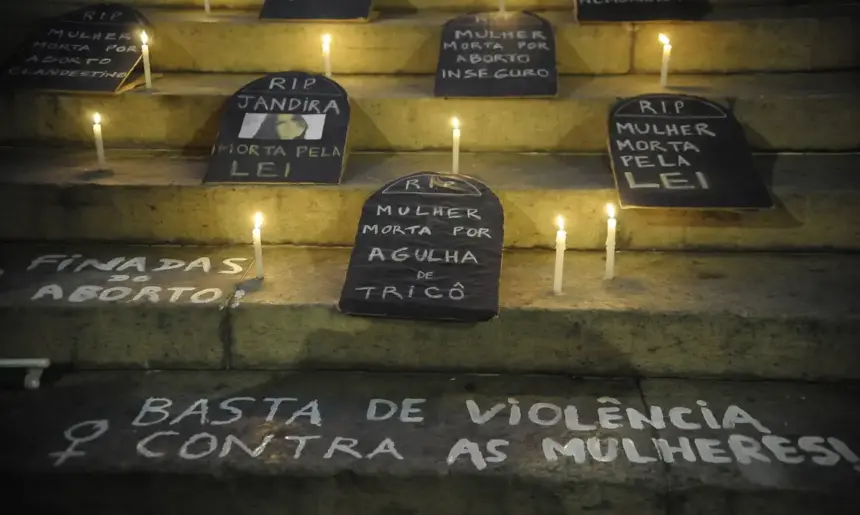 RIP
MULHER
MORTA POR
ABORTO
CLANDESTINO
RIP
MULHER
MORTA POR
ABORTO
INSEGURO
RIP
JANDIRA
MORTA PELA
LEI
RIP
MULHER
MORTA
PELA
LEI
RIP
MULHER
MORTA POR
AGULHA
DE
TRICÔ
FINADAS
DO
ABORTO!
BASTA DE VIOLÊNCIA
CONTRA AS MULHERES!